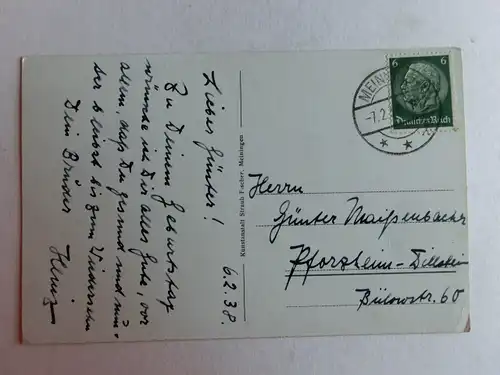 6.2.38.
Lieber Günter!
Zu Deinem Geburtstag
wünsche ich Dir alles Gute, vor
allem, daß Du gesund und mun-
ter bleibst bis zum Wiedersehn
Dein Bruder
Heinz
Kunstanstalt Straub & Fischer, Meiningen
MEIN
-7.2.
6 6
Deutsches Reich
Herrn
Günter Maißenbacher
Pforzheim-Dillstein
Bülowstr. 60